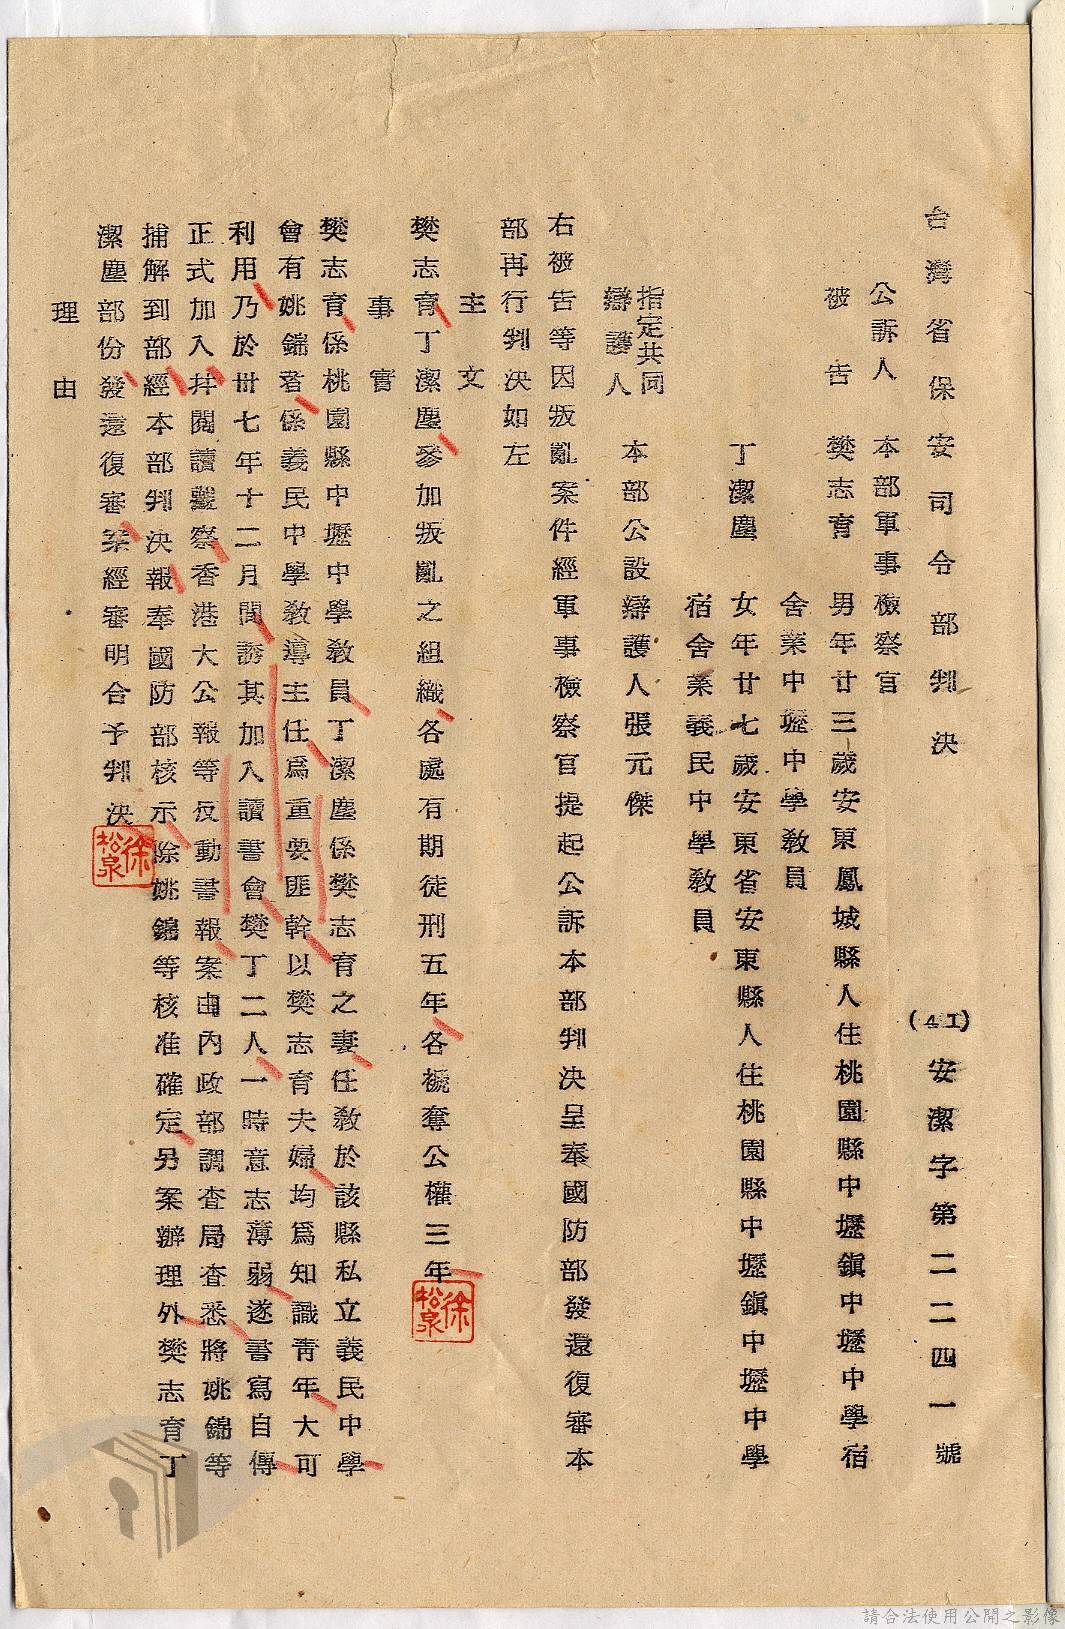 台灣省保安司令部判決
(41)安潔字第二二四一號
公訴人 本部軍事檢察官
被告 樊志育 男年廿三歲安東鳳城縣人住桃園縣中壢鎮中壢中學宿
舍業中壢中學教員
丁潔塵 女年廿七歲安東省安東縣人住桃園縣中壢鎮中壢中學
宿舍業義民中學教員
指定共同
辯護人 本部公設辯護人張元傑
右被告等因叛亂案件經軍事檢察官提起公訴本部判決呈奉國防部發還復審本
部再行判決如左
主文
樊志育丁潔塵參加叛亂之組織各處有期徒刑五年各褫奪公權三年
徐松泉
事實
樊志育係桃園縣中壢中學教員丁潔塵係樊志育之妻任教於該縣私立義民中學
會有姚錦者係義民中學教導主任爲重要匪幹以樊志育夫婦均爲知識青年大可
利用乃於卅七年十二月間誘其加入讀書會樊丁二人一時意志薄弱遂書寫自傳
正式加入并閱讀觀察香港大公報等反動書報案由內政部調查局查悉將姚錦等
捕解到部經本部判決報奉國防部核示除姚錦等核准確定另案辦理外樊志育丁
潔塵部份發還復審案經審明合予判決
徐松泉
理由
請合法使用公開之影像